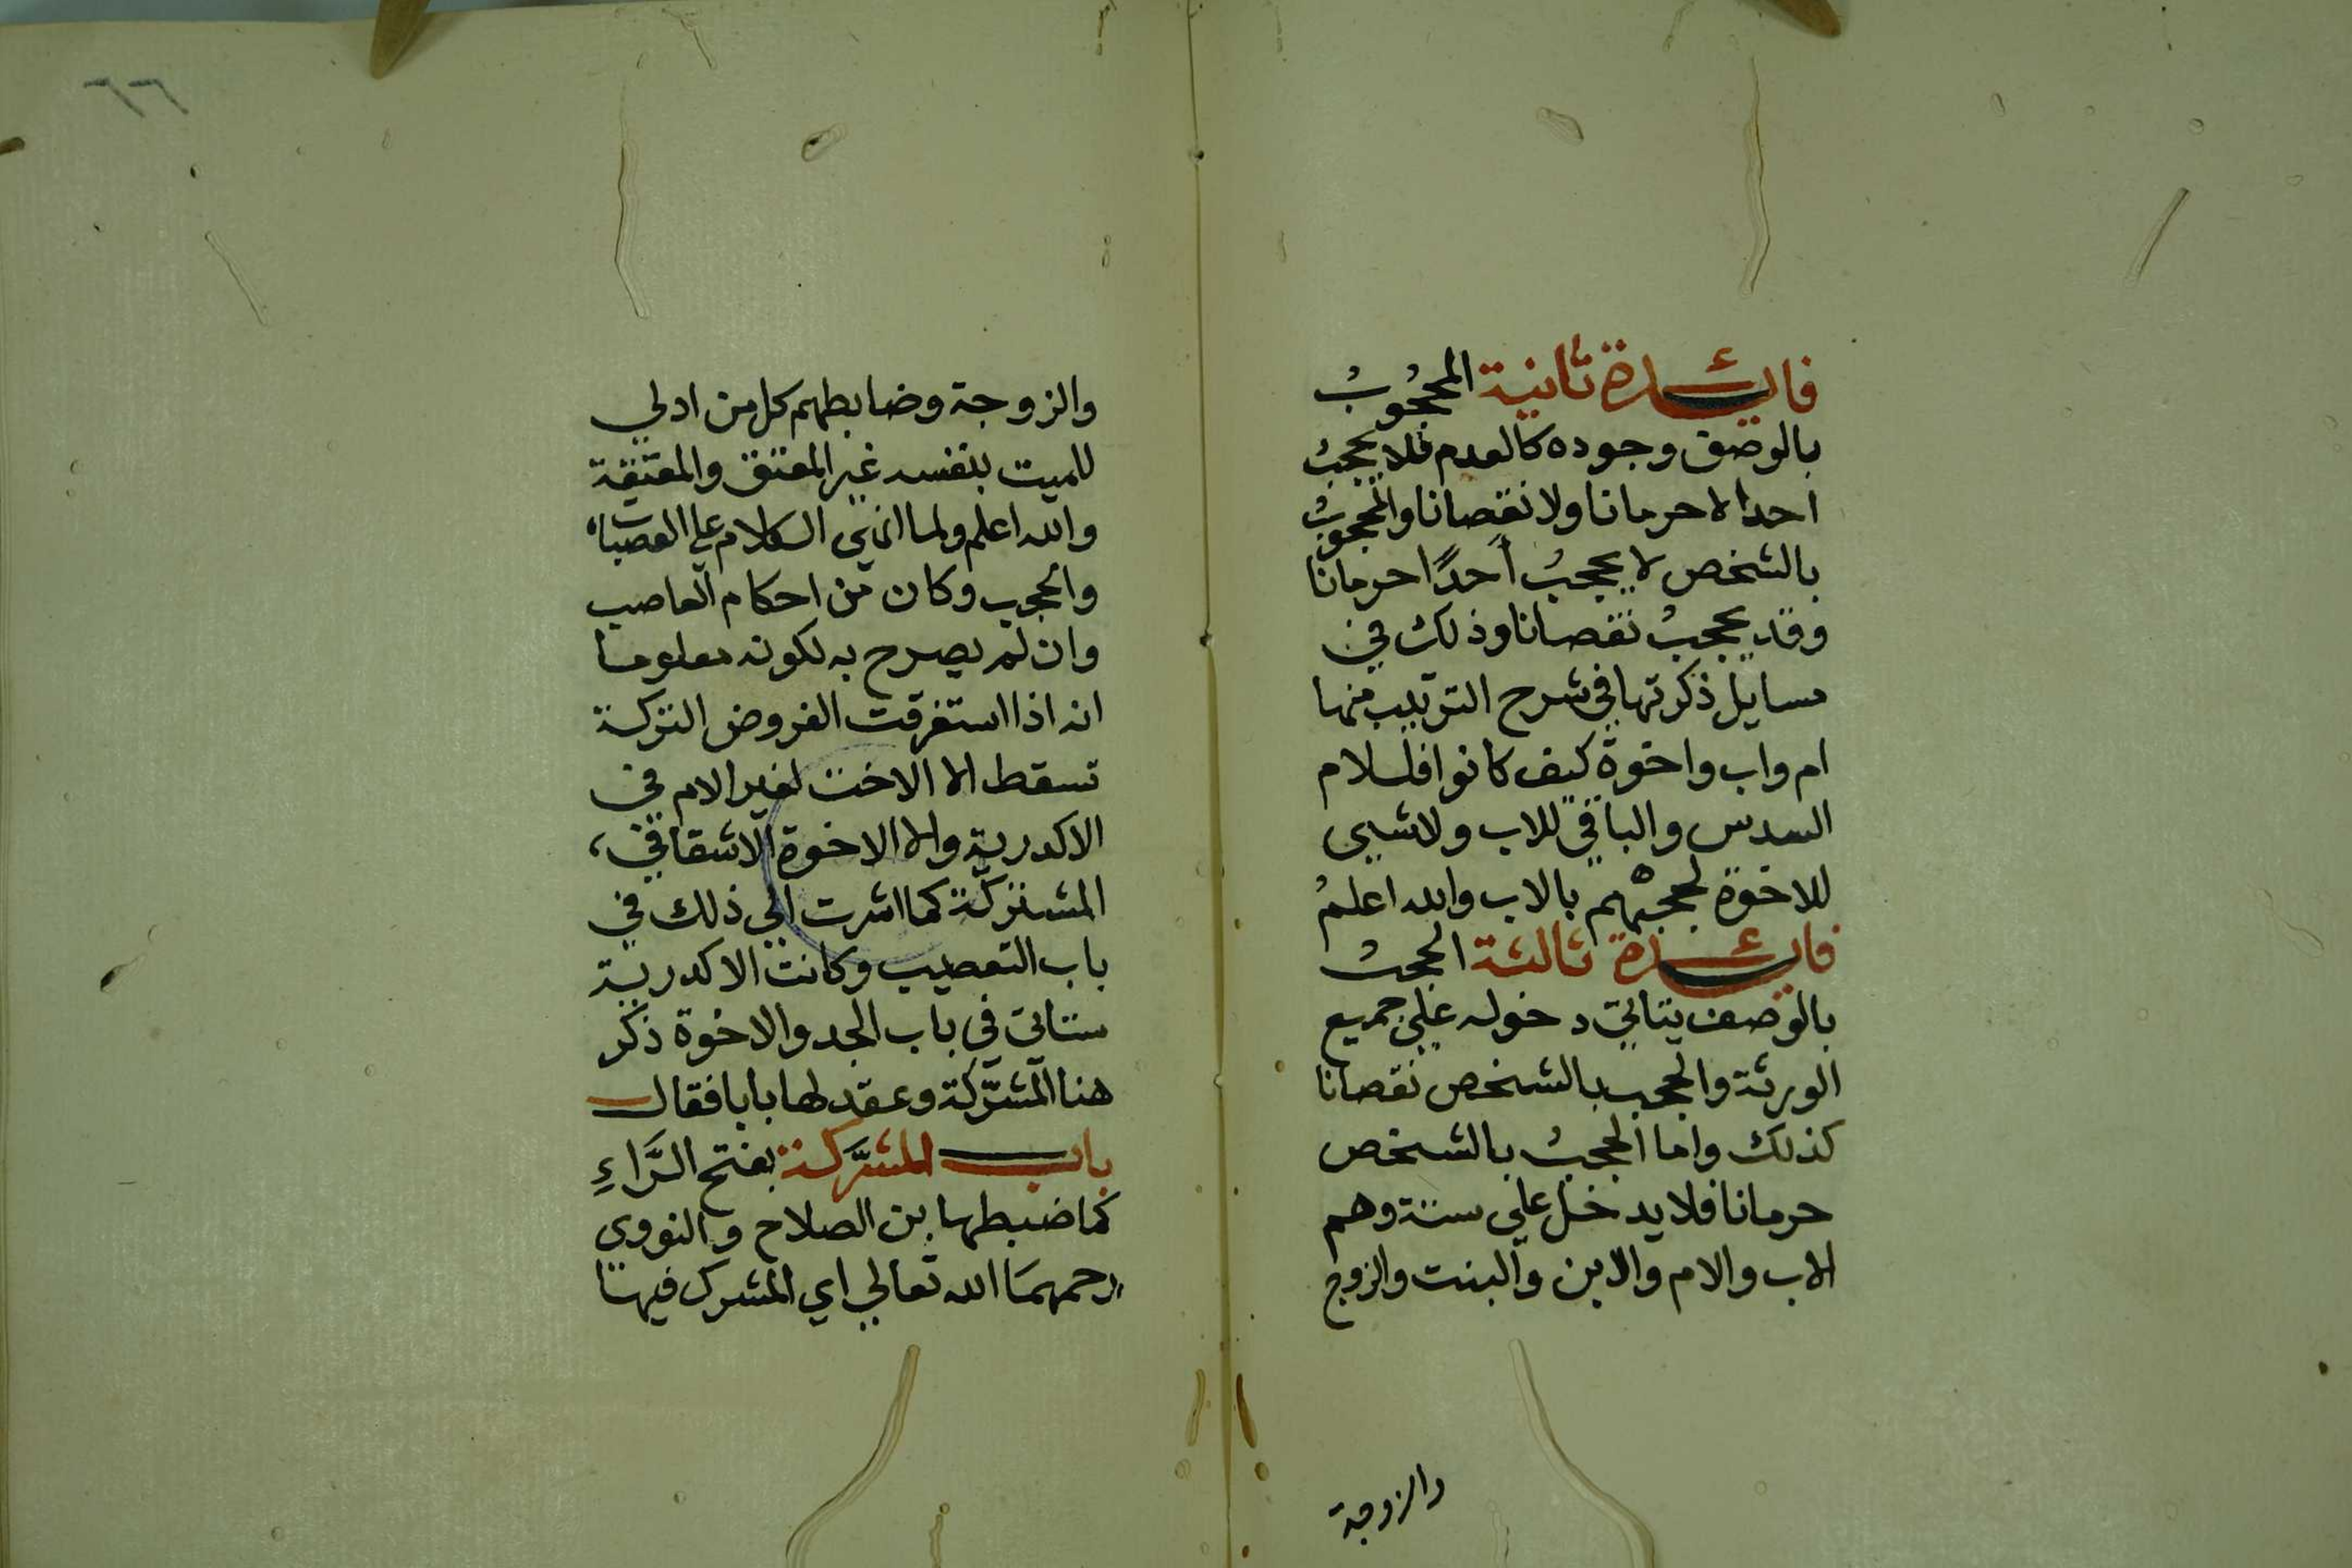 فائدة ثانية المحجُوبُ
بالوصف وجوده كالعدم فلا يحجبُ
احدا لا حرمانا ولا نقصانا والمحجوبُ
بالشخص لا يحجبُ أحدًا حرمانا
وقد يحجبُ نقصانا وذلك في
مسايل ذكرتها في شرح الترتيب منها
ام واب واخوة كيف كانوا فللام
السدس والباقي للاب ولا شيى
للاخوة لحجبهم بالاب والله اعلمُ
فائدة ثالثة الحجبُ
بالوصف يتاتي دخوله علي جميع
الورثة والحجب بالشخص نقصانا
كذلك واما الحجبُ بالشخص
حرمانا فلا يدخل علي ستة وهم
الاب والام والابن والبنت والزوج
والزوجة
٦٦
والزوجة وضابطهم كل من ادلي
للميت بنفسه غير المعتق والمعتقة
والله اعلم ولما انهي الكلام علي العصبات
والحجب وكان من احكام العاصب
وان لم يصرح به لكونه معلوما
انه اذا استغرقت الفروض التركة
تسقط الا الاخت لغير الام في
الاكدرية والا الاخوة الاشقا في
المشتركة كما اشرت الي ذلك في
باب التعصيب وكانت الاكدرية
ستاتي في باب الجد والاخوة ذكر
هنا المشرّكة وعقد لها بابا فقال
باب المشرَّكة بفتح الرَّاءِ
كما ضبطها بن الصلاح والنووي
رحمهمَا الله تعالي اي المشرك فيها